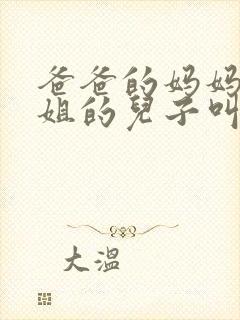 爸爸的妈妈
姐的兒子叫
大溫